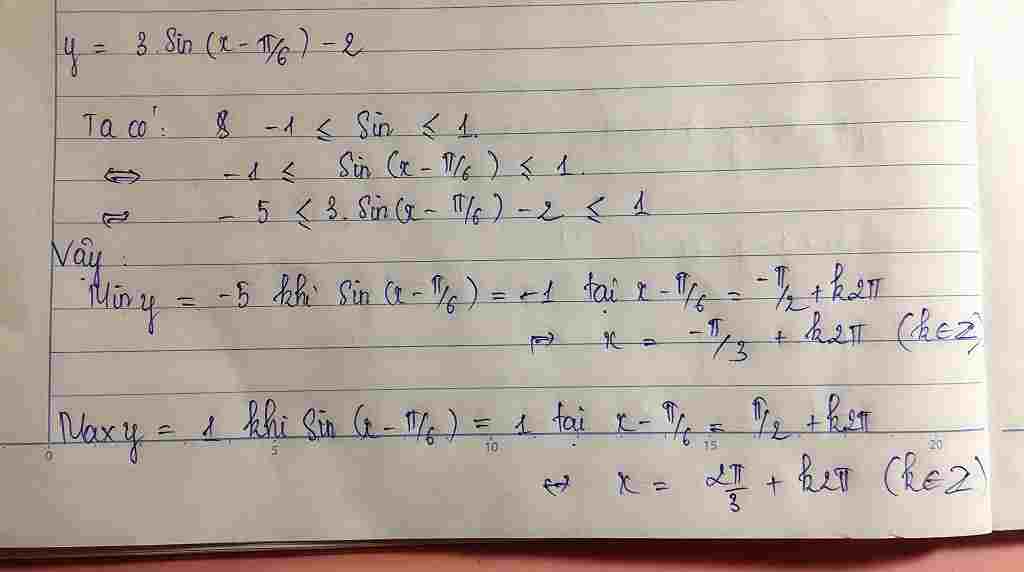 y = 3.Sin(x - π/6) - 2
Ta có: -1 ≤ Sin ≤ 1.
⇔ -1 ≤ Sin(x - π/6) ≤ 1.
⇔ -5 ≤ 3.Sin(x - π/6) - 2 ≤ 1
Vậy:
Min y = -5 khi Sin(x - π/6) = -1 tại x - π/6 = -π/2 + k2π
⇔ x = -π/3 + k2π (k∈Z)
Max y = 1 khi Sin(x - π/6) = 1 tại x - π/6 = π/2 + k2π
0 5 10 15 20
⇔ x = 2π/3 + k2π (k∈Z)